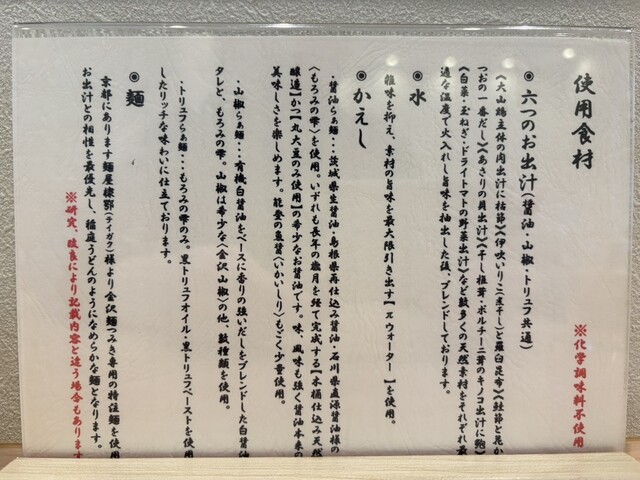 使用食材
※化学調味料不使用
◉六つのお出汁(醤油・山椒・トリュフ共通)
《大山鶏主体の肉出汁に枯節》《伊吹いりこ(煮干し)と羅臼昆布》《鮭節と昆か
つおの一番だし》《あさりの貝出汁》《干し椎茸・ポルチーニ茸のキノコ出汁に鮑》
《白菜・玉ねぎ・ドライトマトの野菜出汁》など数多くの天然素材をそれぞれ最
適な温度で火入れし旨味を抽出した後、ブレンドしております。
◉水
雑味を抑え、素材の旨味を最大限引き出す【πウォーター】を使用。
◉かえし
・醤油らぁ麺・・・茨城県生醤油・島根県再仕込み醤油・石川県直源醤油様の
〈もろみの雫〉を使用。いずれも長年の歳月を経て完成する【木桶仕込み天然
醸造】かつ【丸大豆のみ使用】の希少なお醤油です。味、風味も強く醤油本来の
美味しさを楽しめます。能登の魚醤(いかいしり)もごく少量使用。
・山椒らぁ麺・・・有機白醤油をベースに香りの強いだしをブレンドした白醤油
タレと、もろみの雫。山椒は希少な〈金沢山椒〉の他、数種類を使用。
・トリュフらぁ麺・・・もろみの雫のみ。黒トリュフオイル・黒トリュフペーストを使用
したリッチな味わいに仕立ております。
◉麺
京都にあります麺屋棣鄂(テイガク)様より金沢麺つみき専用の特注麺を使用
お出汁との相性を最優先し、稲庭うどんのようになめらかな麺となります。
※研究、改良により記載内容と違う場合もあります